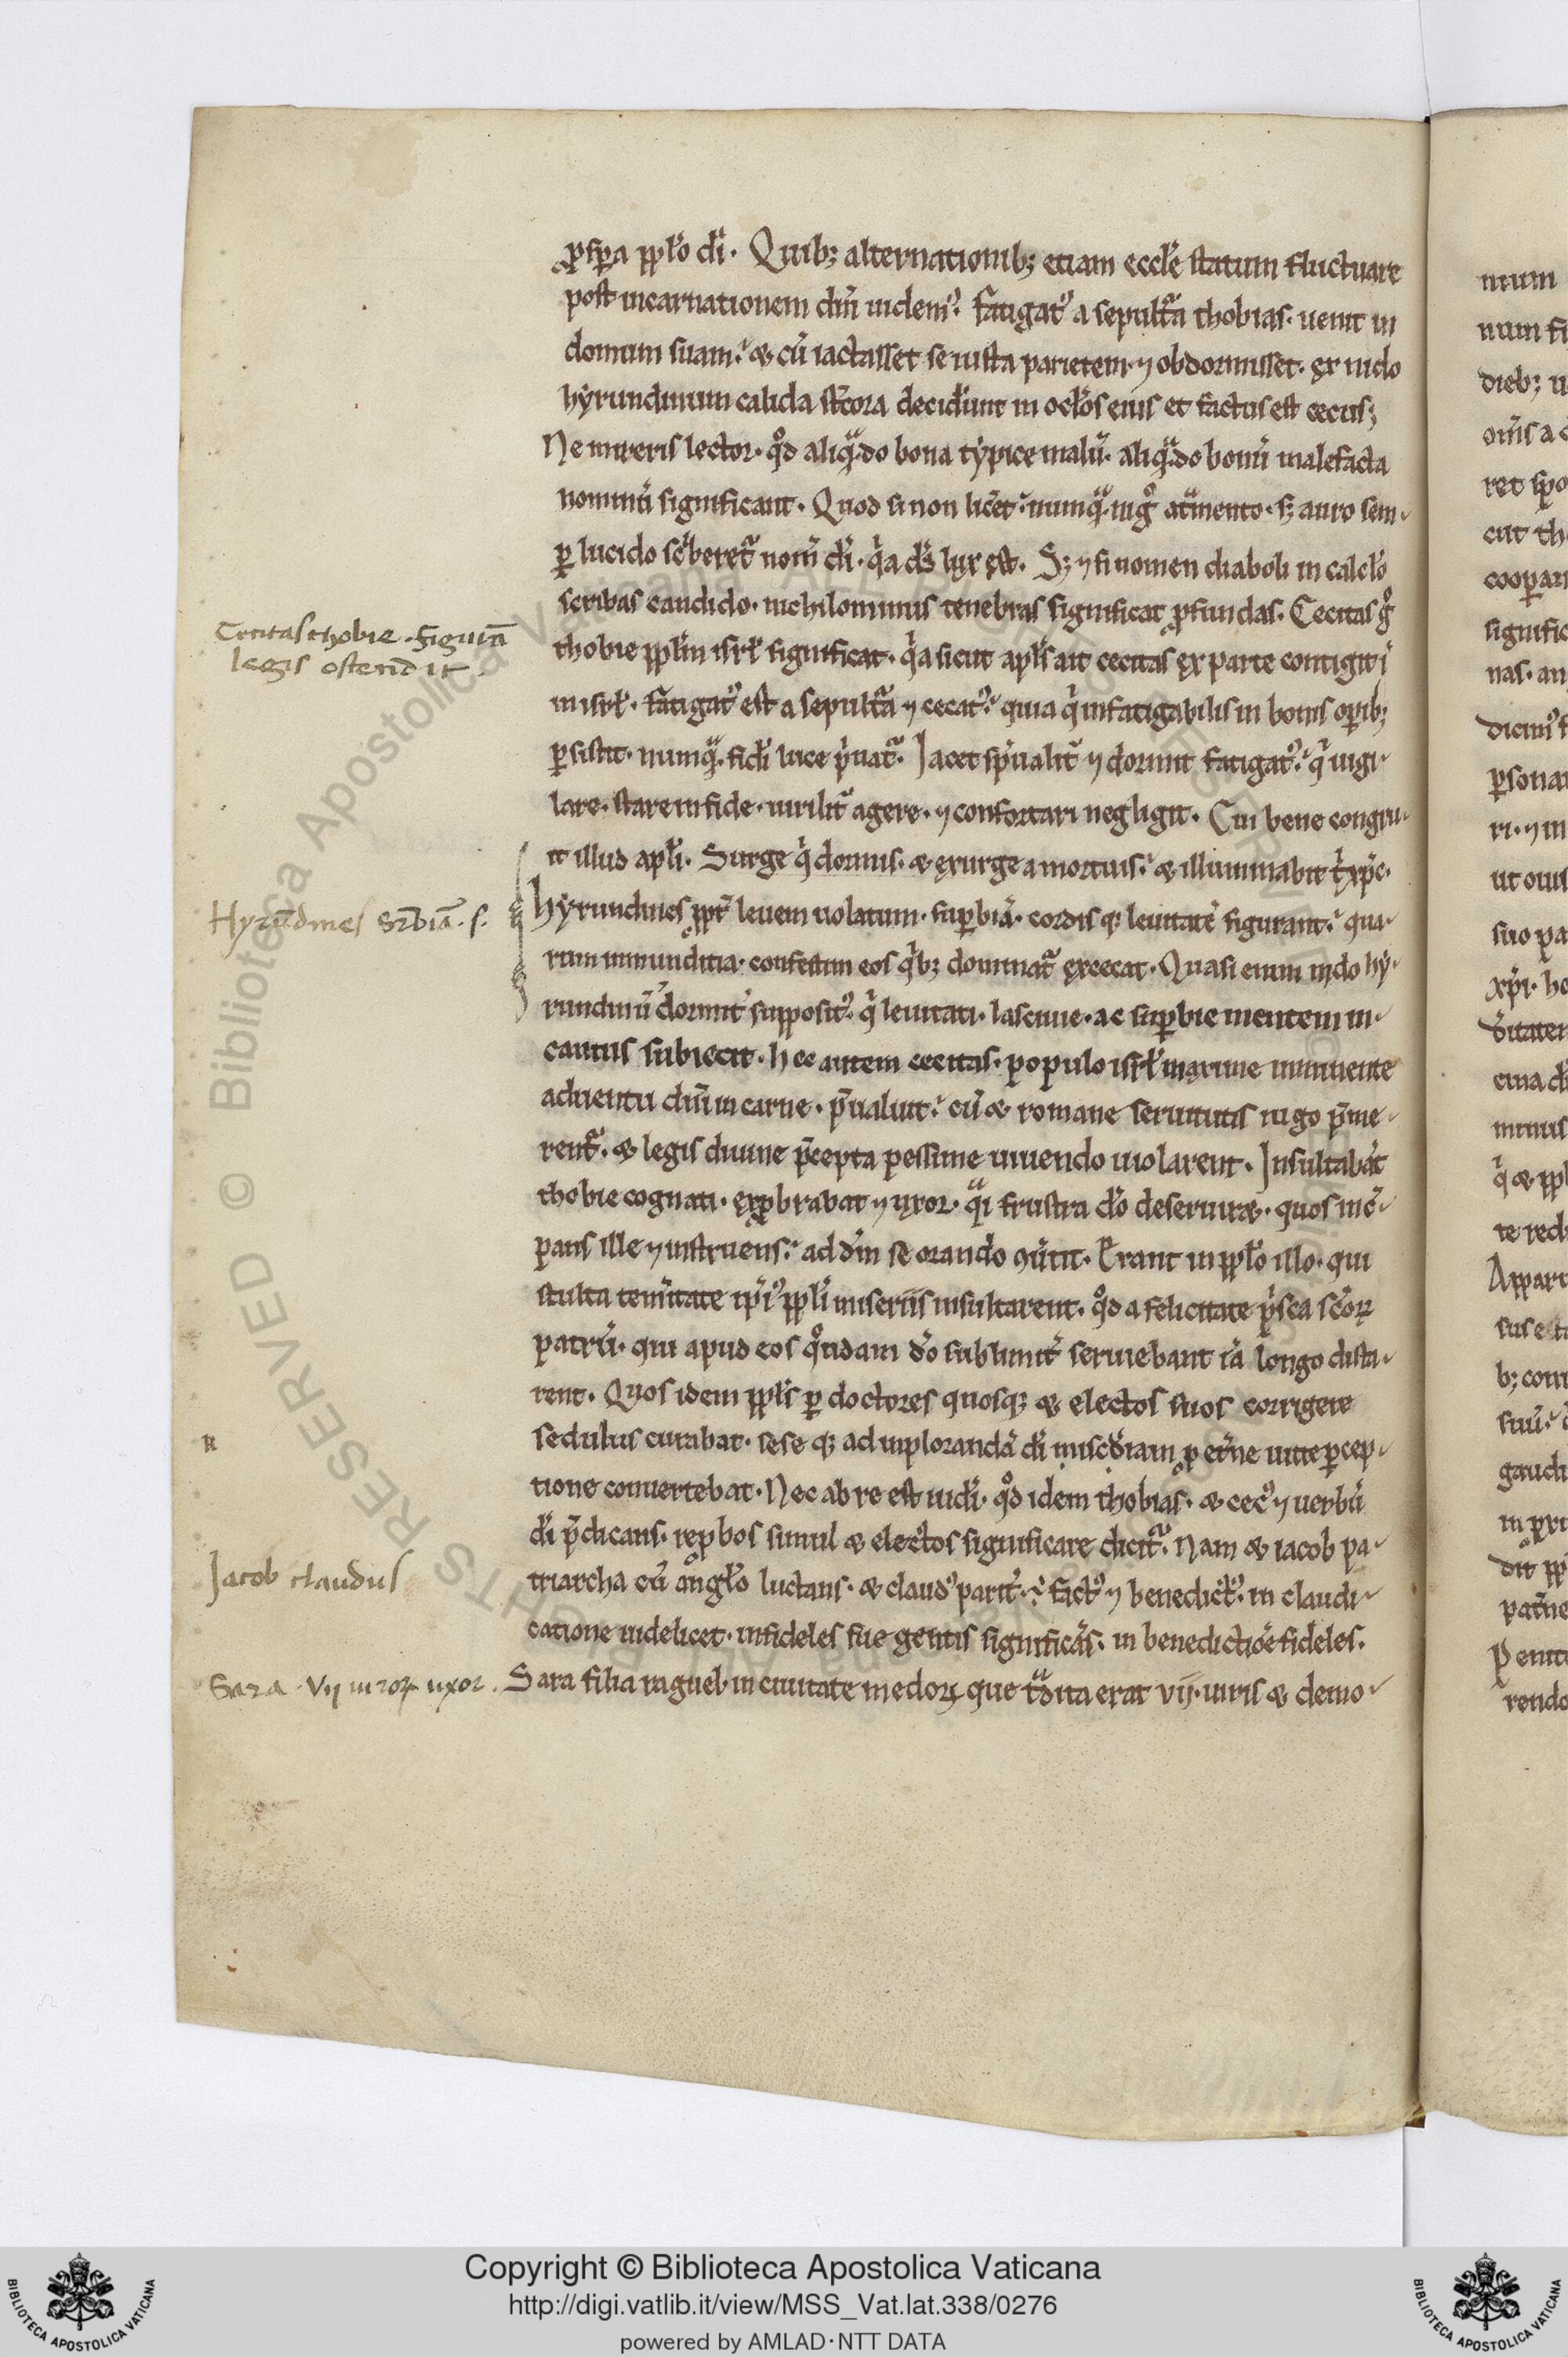 ꝓsꝑa ppl̅o di̅. Quib; alternationib; etiam eccle̅ statum fluctuare
post incarnationem dn̅i uidemꝰ. Fatigatꝰ a sepultᷓa thobias. uenit in
domum suam. & cu̅ iactasset se iuxta parietem. ⁊ obdormisset. ex nido
hyrundinum calida st̅cora decideru̅t in oclo̅s eius et factus est cecus;
Ne mireris lector. qͦd aliqᷓdo bona typice malu̅. aliqᷓdo bonu̅ malefacta
hominu̅ significant. Quod si non licet. numqᷓ nigͦ atᷓmento. sꝫ auro sem
ꝑ lucido scͥberetᷓ nom̅ di̅. qͥa ds̅ lux est. Sꝫ ⁊ si nomen diaboli in calclo̅
scribas candido. nichilominus tenebras significat ꝓfundas. Cecitas gͦ
thobie ppl̅m isrl̅ significat. qͥa sicut apls̅ ait cecitas ex parte contigit
in isrl̅. Fatigatꝰ est a sepultᷓa ⁊ cecatꝰ. quia qͥ infatigabilis in bonis oꝑib;
ꝑsistit. numqᷓ fidei̅ luce pͥuatᷓ. Iacet spͥualit̅ ⁊ dormit fatigatꝰ. qͥ uigi
lare. stare in fide. uirilit̅ agere. ⁊ confortari negligit. Cui bene congru
it illud apli̅. Surge qͥ dormis. & exurge a mortuis. & illuminabit tͥ xpc̅.
Hyrundines ꝓpt̅ leuem uolatum. suꝑbia̅. cordisqꝫ leuitate̅ figurant. qua
rum immunditia. confestim eos qͥb; dominatᷓ excecat. Quasi enim nido hy
rundinu̅ dormit suppositꝰ. qͥ leuitati. lasciuie. ac suꝑbie mentem in
cautus subiecit. Hec autem cecitas. populo isrl̅ maxime imminente
aduentu dn̅i in carne. p̅ualuit. cu̅ & romane seruitutis iugo p̅me
rentᷓ. & legis diuine p̅cepta pessime uiuendo uiolarent. Insultaba̅t
thobie cognati. exꝓbrabat ⁊ uxor. qᷓi frustra do̅ deseruir&. quos inc̅
pans ille ⁊ instruens. ad dn̅m se orando ꝯu̅tit. Erant in ppl̅o illo. qui
stulta tem̅itate ipi̅ꝰ ppl̅i miseriis insultarent. qͦd a felicitate pͥsca sc̅oꝝ
patru̅. qui apud eos qͦndam do̅ sublimit̅ seruiebant ia̅ longo dista
rent. Quos idem ppls̅ ꝑ doctores quosqꝫ & electos suos corrigere
sedulus curabat. seseqꝫ ad inploranda̅ di̅ misc̅diam ꝓ et̅ne uite ꝑcep
tione conuertebat. Nec ab re est uidei̅. qͦd idem thobias. & cecꝰ ⁊ uerbu̅
di̅ p̅dicans. reꝓbos simul & electos significare dicitᷓ. Nam & iacob pa
triarcha cu̅ anglo̅ luctans. & claudꝰ parit̅ ÷ factꝰ ⁊ benedictꝰ. in claudi
catione uidelicet. infideles sue gentis significa̅s. in benedictio̅e fideles.
Sara filia raguel in ciuitate medoꝝ que tᷓdita erat vij. uiris & demo
Cecitas thobie. figura̅
legis ostendit
Hyru̅dines suꝑbia̅. s.
R
Jacob claudus
Sara vij uiroꝝ uxor.
nium
dieb; u
om̅is a
ret spo
cut th
cooꝑan
signific
nas. an
ꝑsonar
ri. ⁊ in
ut ouis
suo pa
xpi̅. h
te red
Appar
gaudi
rendo
Copyright © Biblioteca Apostolica Vaticana
http://digi.vatlib.it/view/MSS_Vat.lat.338/0276
powered by AMLAD·NTT DATA
BIBLIOTECA APOSTOLICA VATICANA
BIBLIOTECA APOSTOLICA VATICANA